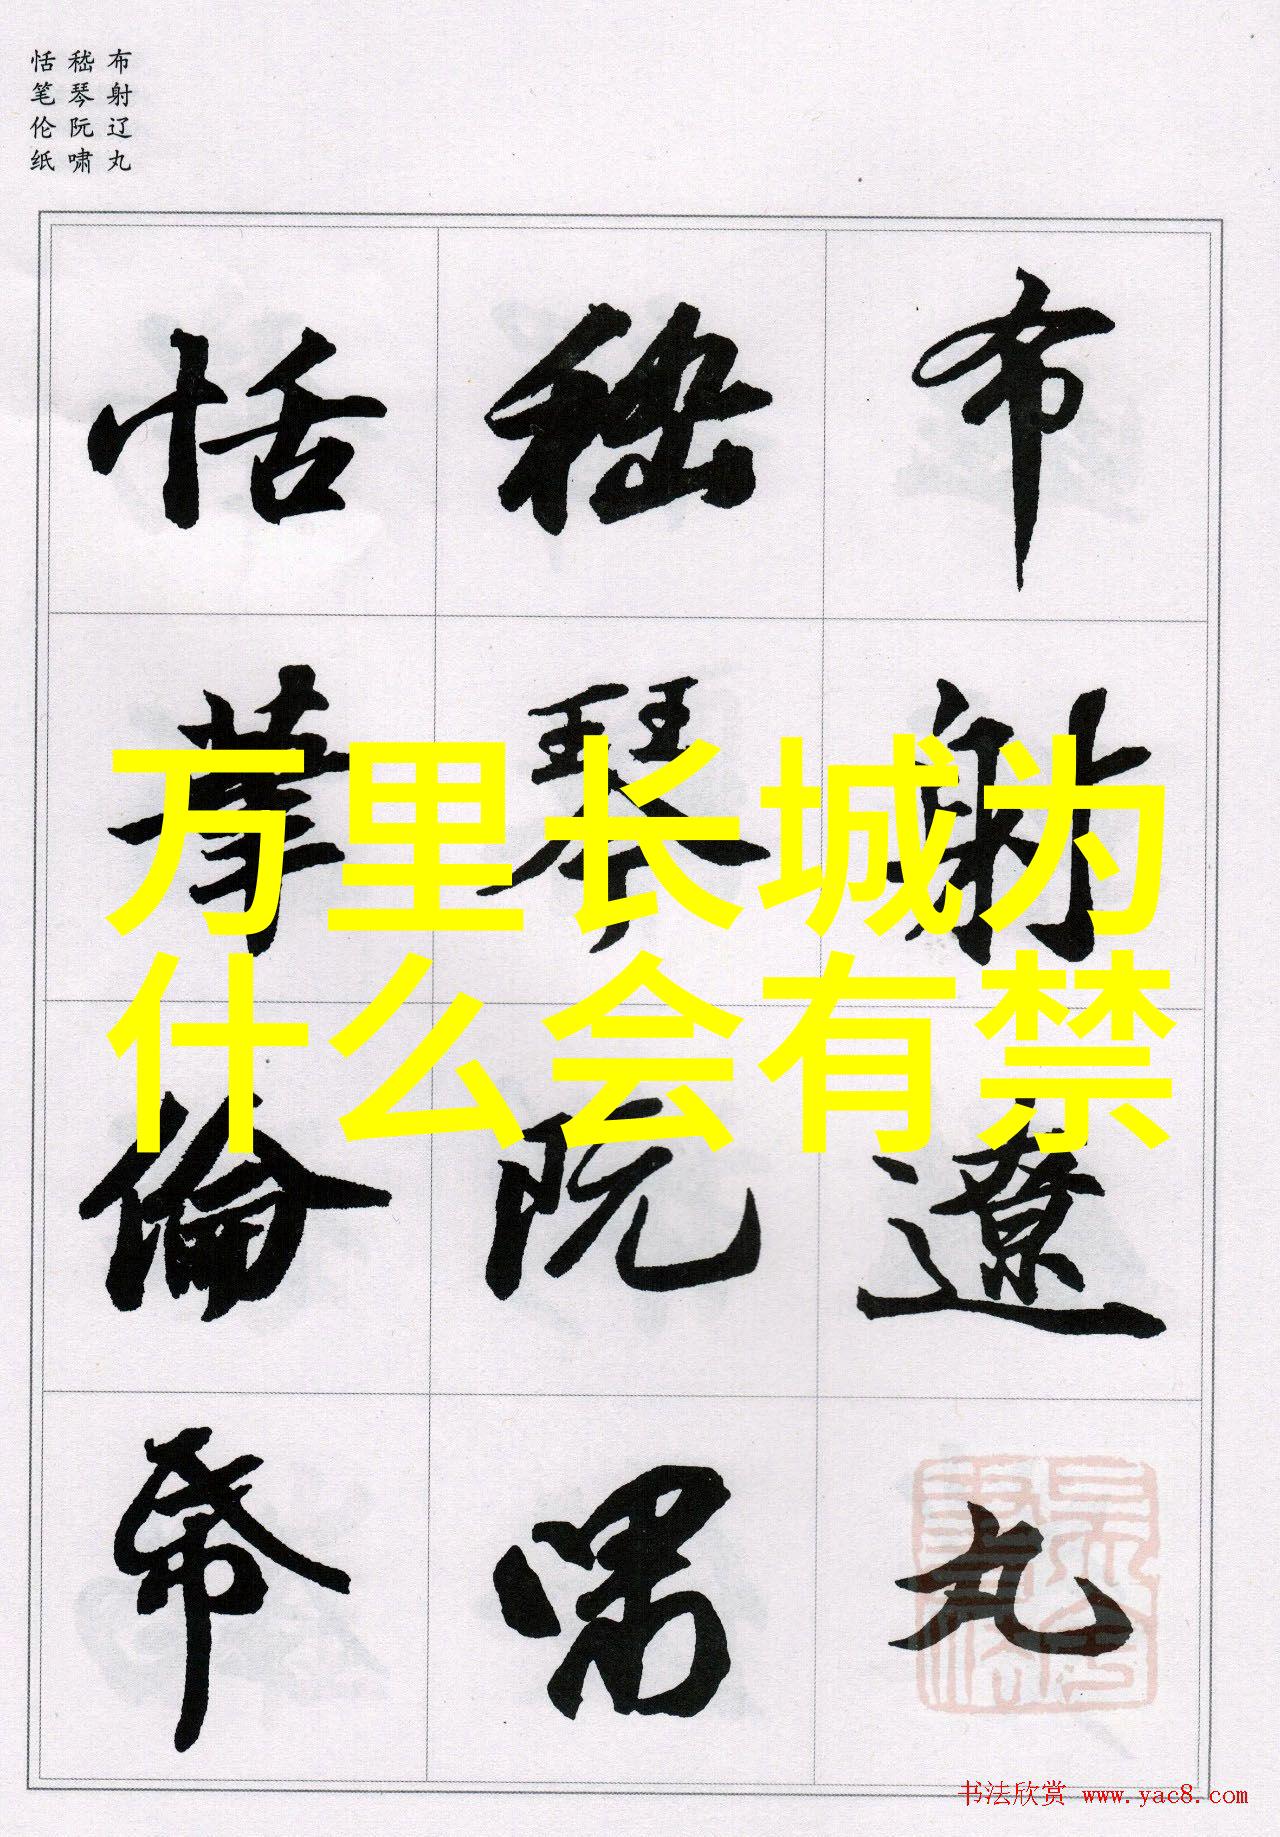 布射辽丸
嵇琴阮啸
恬笔伦纸
布射遼丸
嵇琴阮嘯
恬筆倫帋
万里长城为
什么会有禁
书法欣赏 www.yac8.com